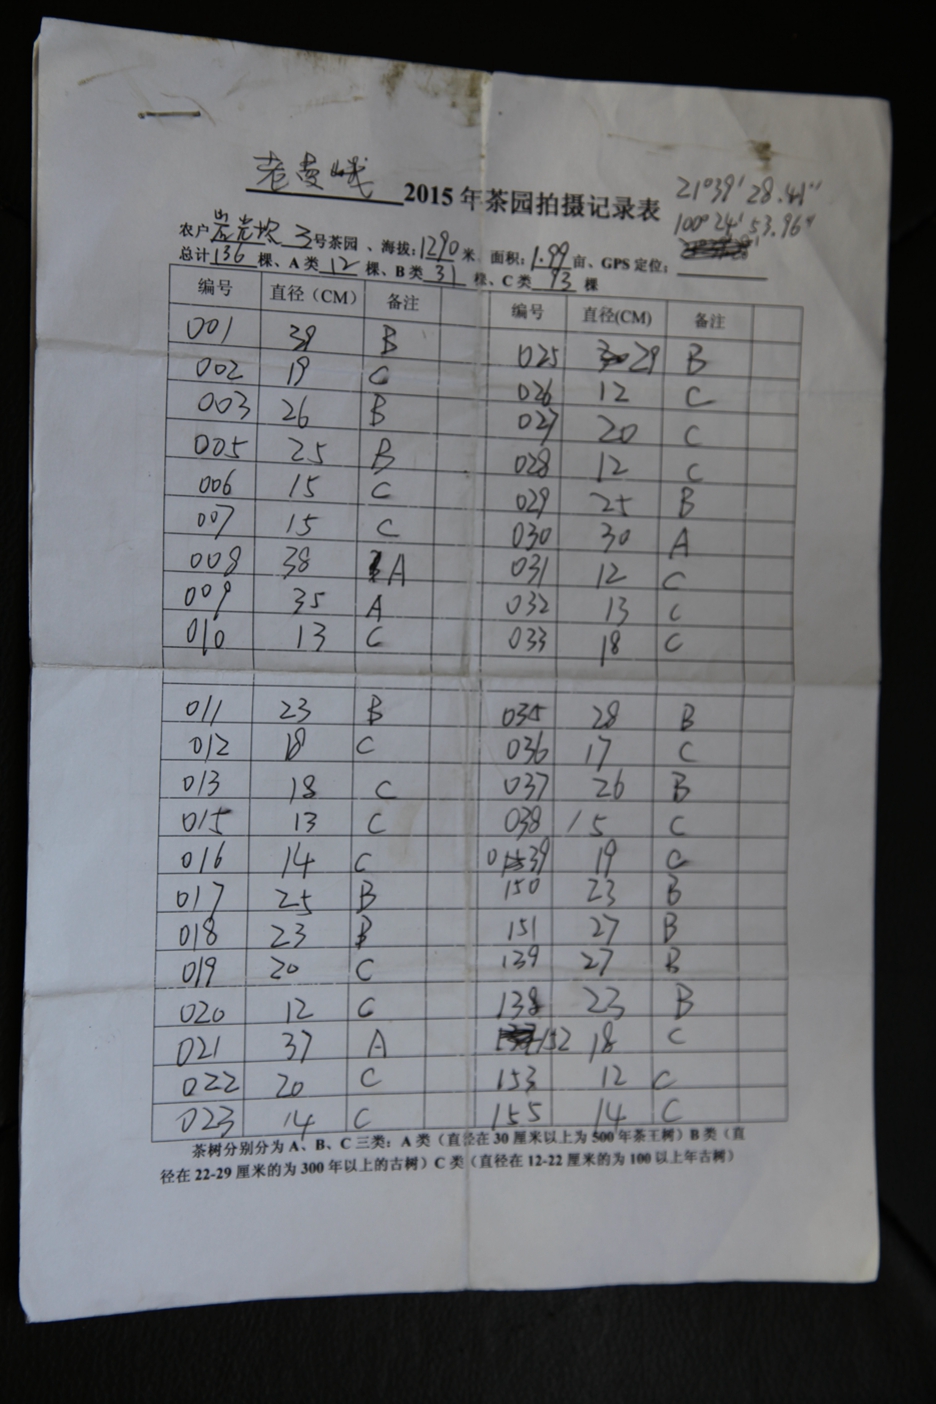 老曼峨 2015年茶园拍摄记录表 21°39′28.41″
100°24′53.96″
农户 岩 3号茶园、海拔:1290米 面积:1.99亩、GPS定位:
总计136棵、A类12棵、B类31棵、C类93棵
编号 直径(CM) 备注 编号 直径(CM) 备注
001 39 B 025 29 B
002 19 C 026 12 C
003 26 B 027 20 C
005 25 B 028 12 C
006 15 C 029 25 B
007 15 C 030 30 A
008 38 A 031 12 C
009 35 A 032 13 C
010 13 C 033 18 C
011 23 B 035 28 B
012 18 C 036 17 C
013 18 C 037 26 B
015 13 C 038 15 C
016 14 C 039 19 C
017 25 B 150 23 B
018 23 B 151 27 B
019 20 C 139 27 B
020 12 C 138 23 B
021 37 A 152 18 C
022 20 C 153 12 C
023 14 C 155 14 C
茶树分别分为A、B、C三类:A类(直径在30厘米以上为500年茶王树)B类(直
径在22-29厘米的为300年以上的古树)C类(直径在12-22厘米的为100以上年古树)